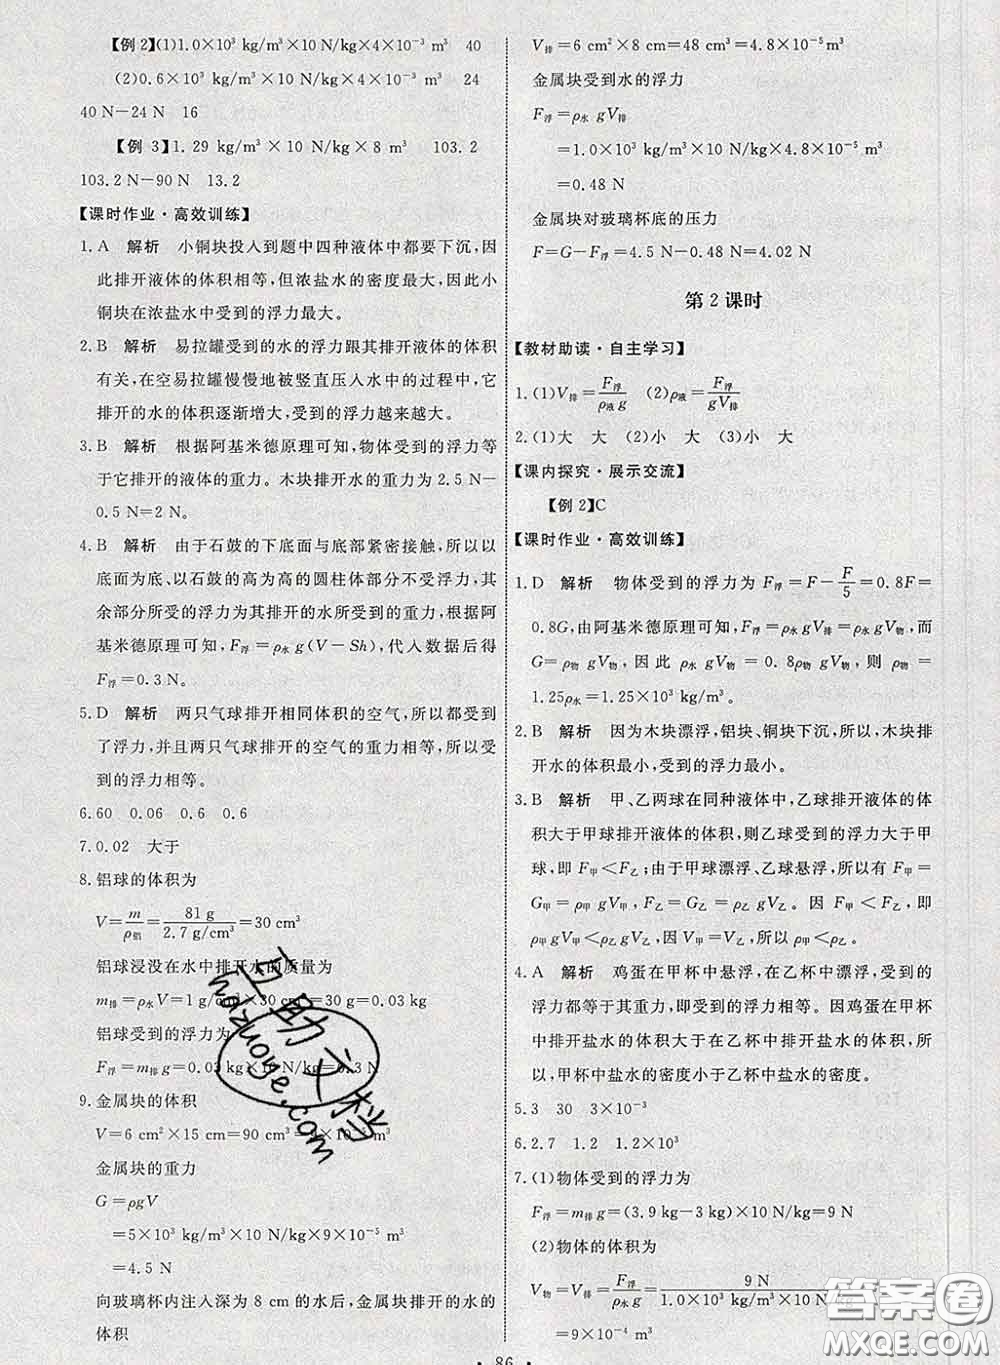 【例2】(1)1.0×10³ kg/m³×10 N/kg×4×10⁻³ m³ 40
(2)0.6×10³ kg/m³×10 N/kg×4×10⁻³ m³ 24
40 N-24 N 16
【例 3】1.29 kg/m³×10 N/kg×8 m³ 103.2
103.2 N-90 N 13.2
【课时作业·高效训练】
1.A 解析 小铜块投入到题中四种液体中都要下沉,因
此排开液体的体积相等,但浓盐水的密度最大,因此小
铜块在浓盐水中受到的浮力最大。
2.B 解析 易拉罐受到的水的浮力跟其排开液体的体积
有关,在空易拉罐慢慢地被竖直压入水中的过程中,它
排开的水的体积逐渐增大,受到的浮力越来越大。
3.B 解析 根据阿基米德原理可知,物体受到的浮力等
于它排开的液体的重力。木块排开水的重力为2.5 N
-0.5 N=2 N。
4.B 解析 由于石鼓的下底面与底部紧密接触,所以以
底面为底、以石鼓的高为高的圆柱体部分不受浮力,其
余部分所受的浮力为其排开的水所受到的重力,根据阿
基米德原理可知,F浮=ρ水 g(V-Sh),代入数据后得
F浮=0.3 N。
5.D 解析 两只气球排开相同体积的空气,所以都受到
了浮力,并且两只气球排开的空气的重力相等,所以受
到的浮力相等。
6.60 0.06 0.6 0.6
7.0.02 大于
8.铝球的体积为
V=m/ρ铝=81 g/2.7 g/cm³=30 cm³
铝球浸没在水中排开水的质量为
m排=ρ水V=1 g/cm³×30 cm³=30 g=0.03 kg
铝球受到的浮力为
F浮=m排g=0.03 kg×10 N/kg=0.3 N
9.金属块的体积
V=6 cm²×15 cm=90 cm³=9×10⁻⁵ m³
金属块的重力
G=ρgV
=5×10³ kg/m³×10 N/kg×9×10⁻⁵ m³
=4.5 N
向玻璃杯内注入深为 8 cm的水后,金属块排开的水的
体积
V排=6 cm²×8 cm=48 cm³=4.8×10⁻⁵m³
金属块受到水的浮力
F浮=ρ水 gV排
=1.0×10³ kg/m³×10 N/kg×4.8×10⁻⁵ m³
=0.48 N
金属块对玻璃杯底的压力
F=G-F浮=4.5 N-0.48 N=4.02 N
第 2 课时
【教材助读·自主学习】
1.(1)V排=F浮/ρ液g (2)ρ液=F浮/gV排
2.(1)大 大 (2)小 大 (3)小 大
【课内探究·展示交流】
【例 2】C
【课时作业·高效训练】
1.D 解析 物体受到的浮力为 F浮=F-F/5=0.8F=
0.8G,由阿基米德原理可知,F浮=ρ水 gV排=ρ水 gV物,而
G=ρ物 gV物,因此 ρ水 gV物=0.8ρ物gV物,则 ρ物=
1.25ρ水=1.25×10³ kg/m³。
2.B 解析 因为木块漂浮,铝块、铜块下沉,所以,木块排
开水的体积最小,受到的浮力最小。
3.B 解析 甲、乙两球在同种液体中,乙球排开液体的体
积大于甲球排开液体的体积,则乙球受到的浮力大于甲
球,即 F甲<F乙;由于甲球漂浮、乙球悬浮,所以,F甲=
G甲=ρ甲 gV甲,F乙=G乙=ρ乙 gV乙。因 F甲<F乙,即
ρ甲gV甲<ρ乙gV乙,因 V甲=V乙,所以,ρ甲<ρ乙。
4.A 解析 鸡蛋在甲杯中悬浮,在乙杯中漂浮,受到的
浮力都等于其重力,即受到的浮力相等。因鸡蛋在甲杯
中排开盐水的体积大于在乙杯中排开盐水的体积,所
以,甲杯中盐水的密度小于乙杯中盐水的密度。
5.3 30 3×10⁻³
6.2.7 1.2 1.2×10³
7.(1)物体受到的浮力为
F浮=m排g=(3.9 kg-3 kg)×10 N/kg=9 N
(2)物体的体积为
V物=V排=F浮/ρ水 g=9 N/1.0×10³ kg/m³×10 N/kg
=9×10⁻⁴ m³
· 86 ·
互助文档
hdzuoye.com
答案圈
MXQE.COM